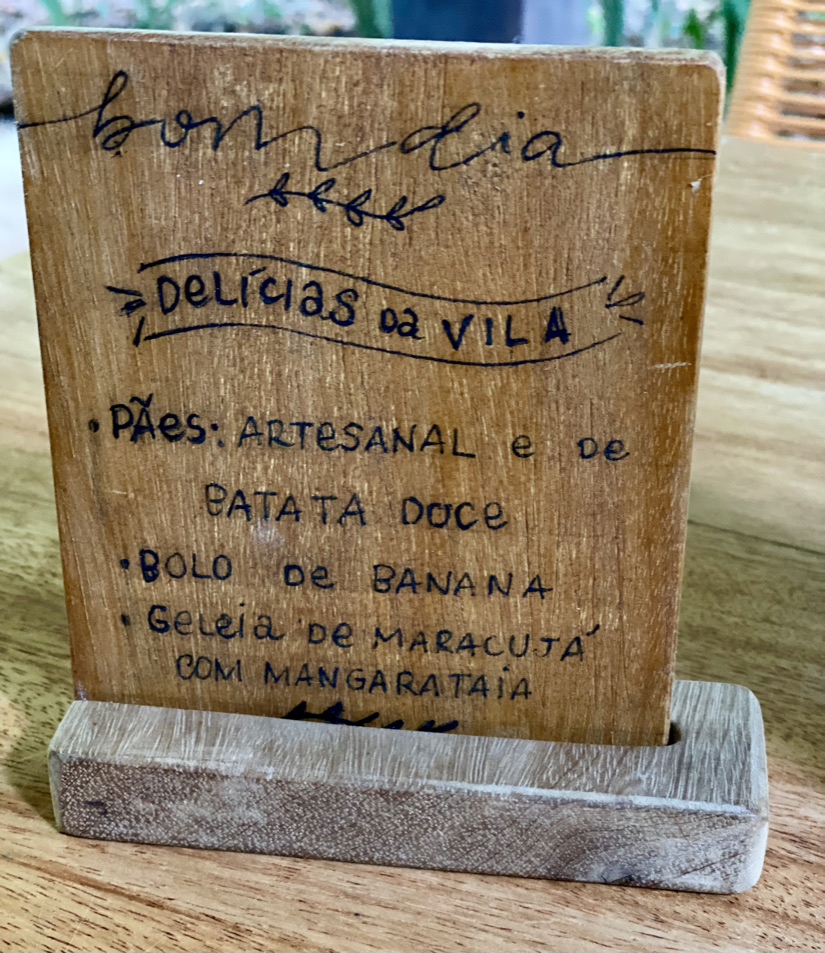 bom dia
DeLÍCIas Da VILA
• PÃes: ARTeSANAL e De
BATATA DOCe
• BOLO De BANANA
• GeLeia De MARACUJÁ
COM MANGARATAiA